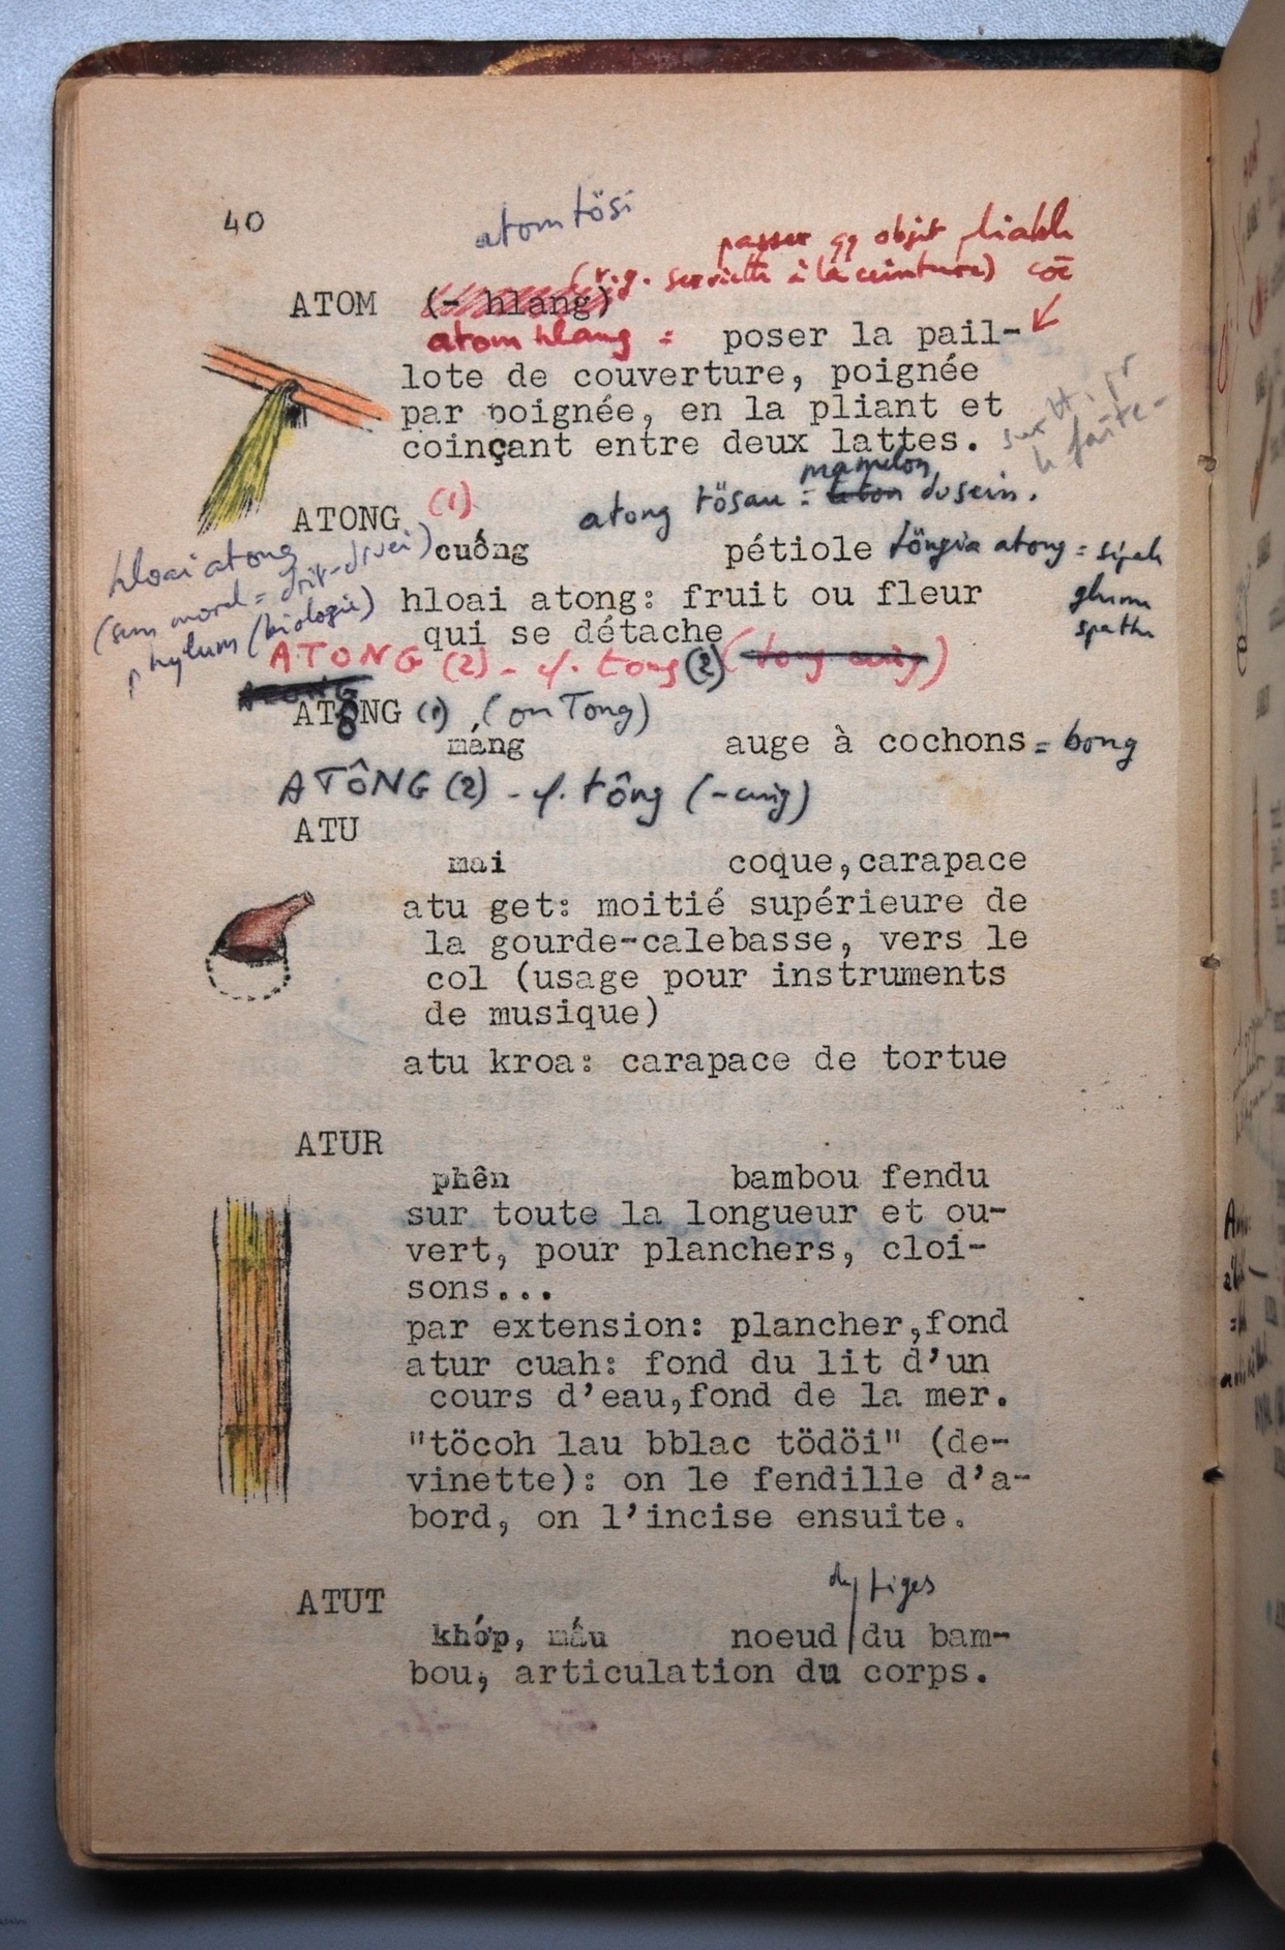 40
atom tösi
passer qq objet pliable
(v.g. serviette à la ceinture) cõe
ATOM (- hlang)
atom hlang = poser la pail-
lote de couverture, poignée
par poignée, en la pliant et
coinçant entre deux lattes.
sur tt. pr
le faîte-
mamelon
ATONG (1) atong tösau = du sein.
cuống pétiole töngia atong =
hloai atong
(sens moral =
phylum (biologie)
hloai atong: fruit ou fleur
qui se détache
glume
spathe
ATONG (2) - cf. tong (2) (tong cuig)
ATONG
ATÔNG (1) (ou Tong)
máng auge à cochons = bong
ATÔNG (2) - cf. tông (-cuig)
ATU
mai coque,carapace
atu get: moitié supérieure de
la gourde-calebasse, vers le
col (usage pour instruments
de musique)
atu kroa: carapace de tortue
ATUR
phên bambou fendu
sur toute la longueur et ou-
vert, pour planchers, cloi-
sons...
par extension: plancher,fond
atur cuah: fond du lit d'un
cours d'eau,fond de la mer.
"töcoh lau bblac tödöi" (de-
vinette): on le fendille d'a-
bord, on l'incise ensuite.
des tiges
ATUT
khớp, mấu noeud du bam-
bou, articulation du corps.